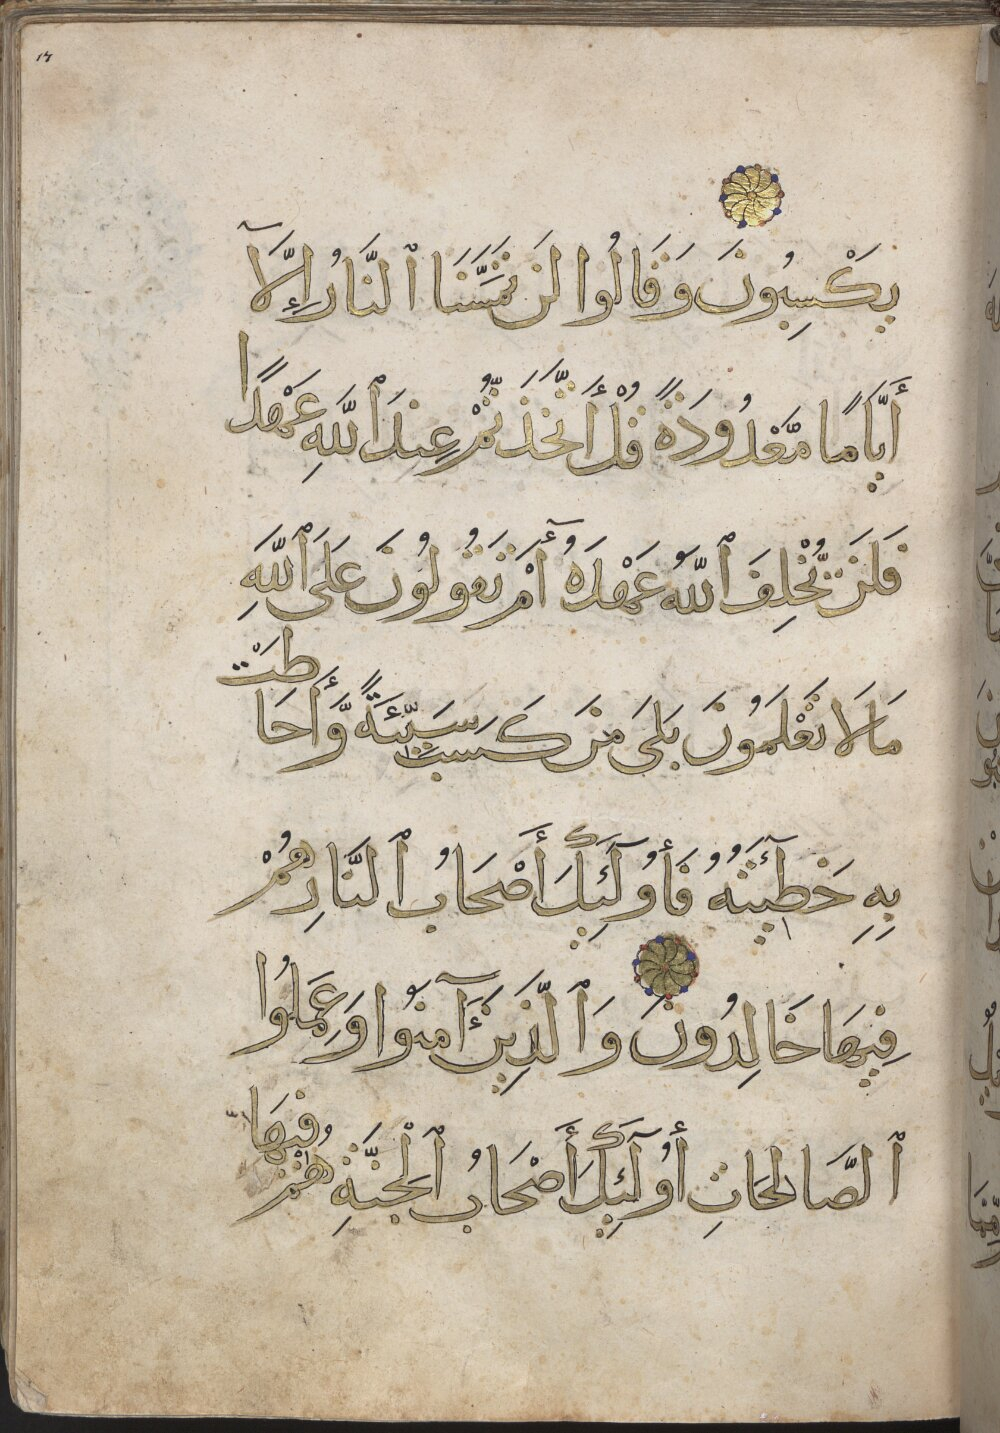 ١٣
يَكْسِبُونَ وَقَالُوا لَن تَمَسَّنَا ٱلنَّارُ إِلَّآ
أَيَّامًا مَّعْدُودَةً قُلْ أَتَّخَذْتُمْ عِندَ ٱللَّهِ عَهْدًا
فَلَن يُّخْلِفَ ٱللَّهُ عَهْدَهُٓ أَمْ تَقُولُونَ عَلَى ٱللَّهِ
مَا لَا تَعْلَمُونَ بَلَى مَن كَسَبَ سَيِّئَةً وَّأَحَاطَتْ
بِهِ خَطِيٓـَٔتُهُ فَأُولَٰٓئِكَ أَصْحَابُ ٱلنَّارِ هُمْ
فِيهَا خَالِدُونَ وَٱلَّذِينَ ءَآمَنُوا وَعَمِلُوا
ٱلصَّالِحَاتِ أُولَٰٓئِكَ أَصْحَابُ ٱلْجَنَّةِ هُمْ فِيهَا